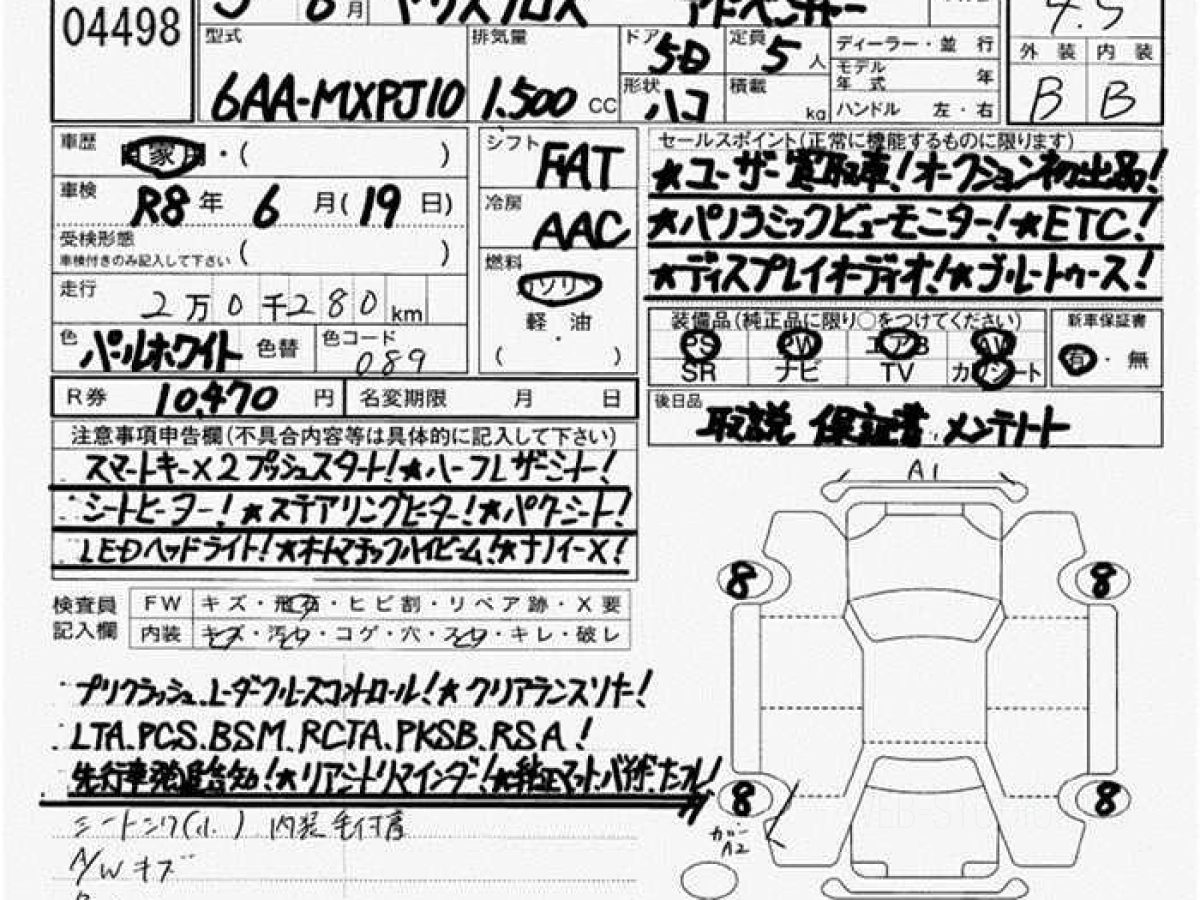 04498
5 6月 ヤリスクロス アドベンチャー
4.5
型式 6AA-MXPJ10
排気量 1.500 CC
ドア 5D
定員 5人
形状 ハコ
積載 kg
ディーラー・並 行
モデル年式 年
ハンドル 左・右
外装 内装
B B
車歴 自家用・( )
車検 R8年 6月(19日)
受検形態
車検付きのみ記入して下さい ( )
走行 2万0千280km
色 パールホワイト 色替
色コード 089
シフト FAT
冷房 AAC
燃料 ガソリン
軽・油
( )
セールスポイント(正常に機能するものに限ります)
★ユーザー買取車!オークション初出品!
★パノラミックビューモニター!★ETC!
★ディスプレイオーディオ!★ブルートゥース!
装備品(純正品に限り○をつけてください)
PS PW エアB AW
SR ナビ TV カワシート
新車保証書
有・無
R券 10,470円
名変期限 月 日
後日品 取説 保証書 メンテノート
注意事項申告欄(不具合内容等は具体的に記入して下さい)
スマートキー×2プッシュスタート!★ハーフレザーシート!
シートヒーター!★ステアリングヒーター!★パワーシート!
LEDヘッドライト!★オートマチックハイビーム!★ナノイーX!
検査員記入欄
FW キズ・飛石・ヒビ割・リペア跡・X要
内装 キズ・汚れ・コゲ・穴・スレ・キレ・破レ
プリクラッシュ.レーダークルーズコントロール!★クリアランスソナー!
LTA.PCS.BSM.RCTA.PKSB.RSA!
先行車発進告知!★リアシートリマインダー!★純正マット.バイザー.たフル!
シートシワ(小) 内装毛付着
A/Wキズ
A1
8 8
8 8
カバーA2